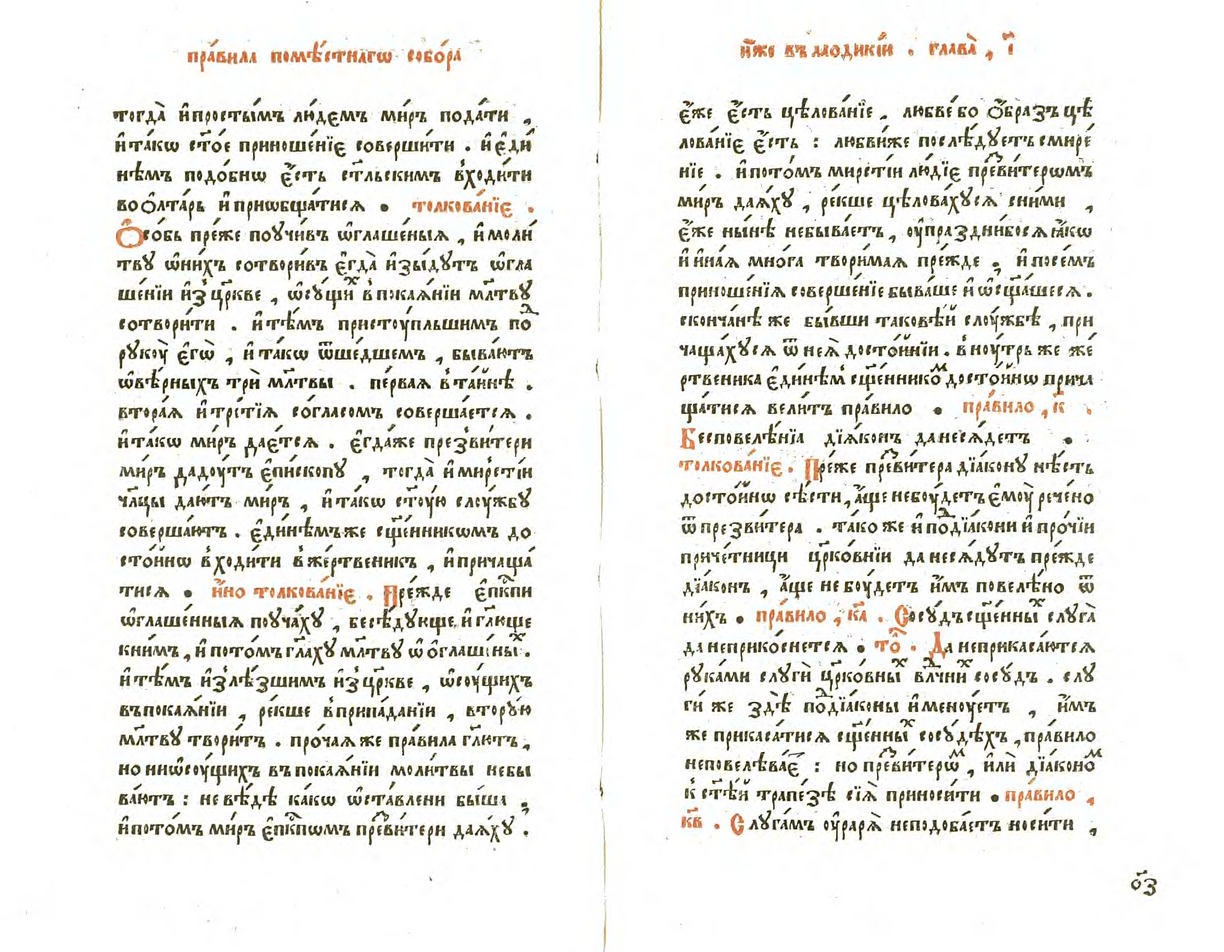 пра́вила помѣ́стнагѡ собо́ра
тогда̀ и҆просты́мъ лю́демъ ми́ръ пода́ти ,
и҆та́кѡ ст҃о́е приноше́нїе соверши́ти . и҆є҆ди́
нѣ́мъ подо́бнѡ є҆́сть ст҃льскимъ вхо́дити
воѻ҆лта́рь и҆прїѡбща́тися • толкова́нїе .
Ѻ҆со́бь пре́же поучи́въ ѡ҆глаше́ныя , и҆моли́
тву ѡ҆ни́хъ сотвори́въ є҆гда̀ и҆зы́дутъ ѡ҆гла
ше́нїи и҆з̾ цр҃кве , ѡ҆су́щи^х впокая́нїи мл҃тву
сотвори́ти . и҆тѣ́мъ пристоу́пльшимъ по^д
рукоу̀ є҆гѡ̀ , и҆та́кѡ ѿше́дшемъ , быва́ютъ
ѡ҆вѣ́рныхъ трѝ мл҃твы . пе́рвая вта́йнѣ .
втора́я и҆тре́тїя со́гласомъ соверша́ется .
и҆та́кѡ ми́ръ дае́тся . є҆гда́же презви́тери
ми́ръ даду́тъ є҆пи́скопу , тогда̀ и҆ми́рстїи
ча́цы даю́тъ ми́ръ , и҆та́кѡ ст҃у́ю слу́жбу
соверша́ютъ . є҆ди́нѣмъже сщ҃е́нникѡмъ до
сто́йнѡ вхо́дити вже́ртвеникъ , и҆причаща́
тися • и҆́но толкова́нїе . Пре́жде є҆пкⷭ҇пи
ѡ҆глаше́нныя поуча́ху , бесѣ́дующе и҆гл҃юще
кни́мъ , и҆пото́мъ гл҃аху мл҃тву ѡ҆ѻ҆глаше́ны^х .
и҆тѣ́мъ и҆злѣ́зшимъ и҆зцр҃кве , ѡ҆су́щихъ
въпокая́нїи , ре́кше вприпа́данїи , втору́ю
мл҃тву творя́тъ . про́чаяже пра́вила гл҃ютъ ,
но ниѡ҆су́щихъ въпокая́нїи моли́твы небы
ва́ютъ : невѣ́дѣ ка́кѡ ѡ҆ста́влени бы́ша ,
и҆пото́мъ ми́ръ є҆пкⷭ҇пѡмъ пре́вѵтери дая́ху .
и҆́же въ лаѻдикі́и . глава̀ , і҃
є҆́же є҆́сть цѣлова́нїе . любве́ бо ѻ҆́бразъ цѣ
лова́нїе є҆́сть : любви́же послѣ́дуетъ смире́
нїе . и҆пото́мъ ми́рстїи лю́дїе пре́витерѡмъ
ми́ръ дая́ху , ре́кше цѣлова́хуся сни́ми ,
є҆́же ны́нѣ небыва́етъ , ѹ҆праздни́бося ꙗ҆́кѡ
и҆ и҆на́я мно́га твори́мая пре́жде , и҆посе́мъ
приноше́нїя соверше́нїе быва́ше и҆ѡ҆сщ҃а́шеся .
сконча́нѣ же бы́вши таковѣ́й слу́жбѣ , при
чаща́хуся ѿ нея̀ досто́йнїи . вну́трь же же́
ртвеника є҆ди́нѣм сщ҃е́ннико^м досто́йнѡ прича
ща́тися вели́тъ пра́вило • пра́вило , к҃ .
Бесповелѣ́нїа дїя́конъ данеся́детъ •
толкова́нїе . Пре́же пре́витера дїа́кону нѣ́сть
досто́йнѡ сѣ́сти , а҆́ще небу́детъ є҆мꙋ̀ рече́но
ѿ презви́тера . та́ко же и҆ по^дїа́кони и҆ про́чїи
приче́тници цр҃ко́внїи данеся́дутъ пре́жде
дїа́конъ , а҆́ще не бу́детъ и҆̀мъ повелѣ́но ѿ
ни́хъ • пра́вило , к҃а . Сосу́дъ сщ҃е́нны^х слуга̀
да неприко́снется • то^л . Да неприкаса́ются
рука́ми слуги̑ цр҃ко́вны^х влⷣчни^х сосу́дъ . слу
ги́ же здѣ̀ по^дїа́коны и҆мену́етъ , и҆̀мъ
же прикаса́тися сщ҃е́нны^х сосу́дѣхъ , пра́вило
неповелѣва́е^т : но пре́витерѡ^м , и҆лѝ дїа́коно^м
к ст҃ѣ́й трапе́зѣ сїя̀ приноси́ти • пра́вило ,
к҃в . Слуга́мъ ѹ҆раря̀ неподоба́етъ носи́ти ,
ѻ҃з